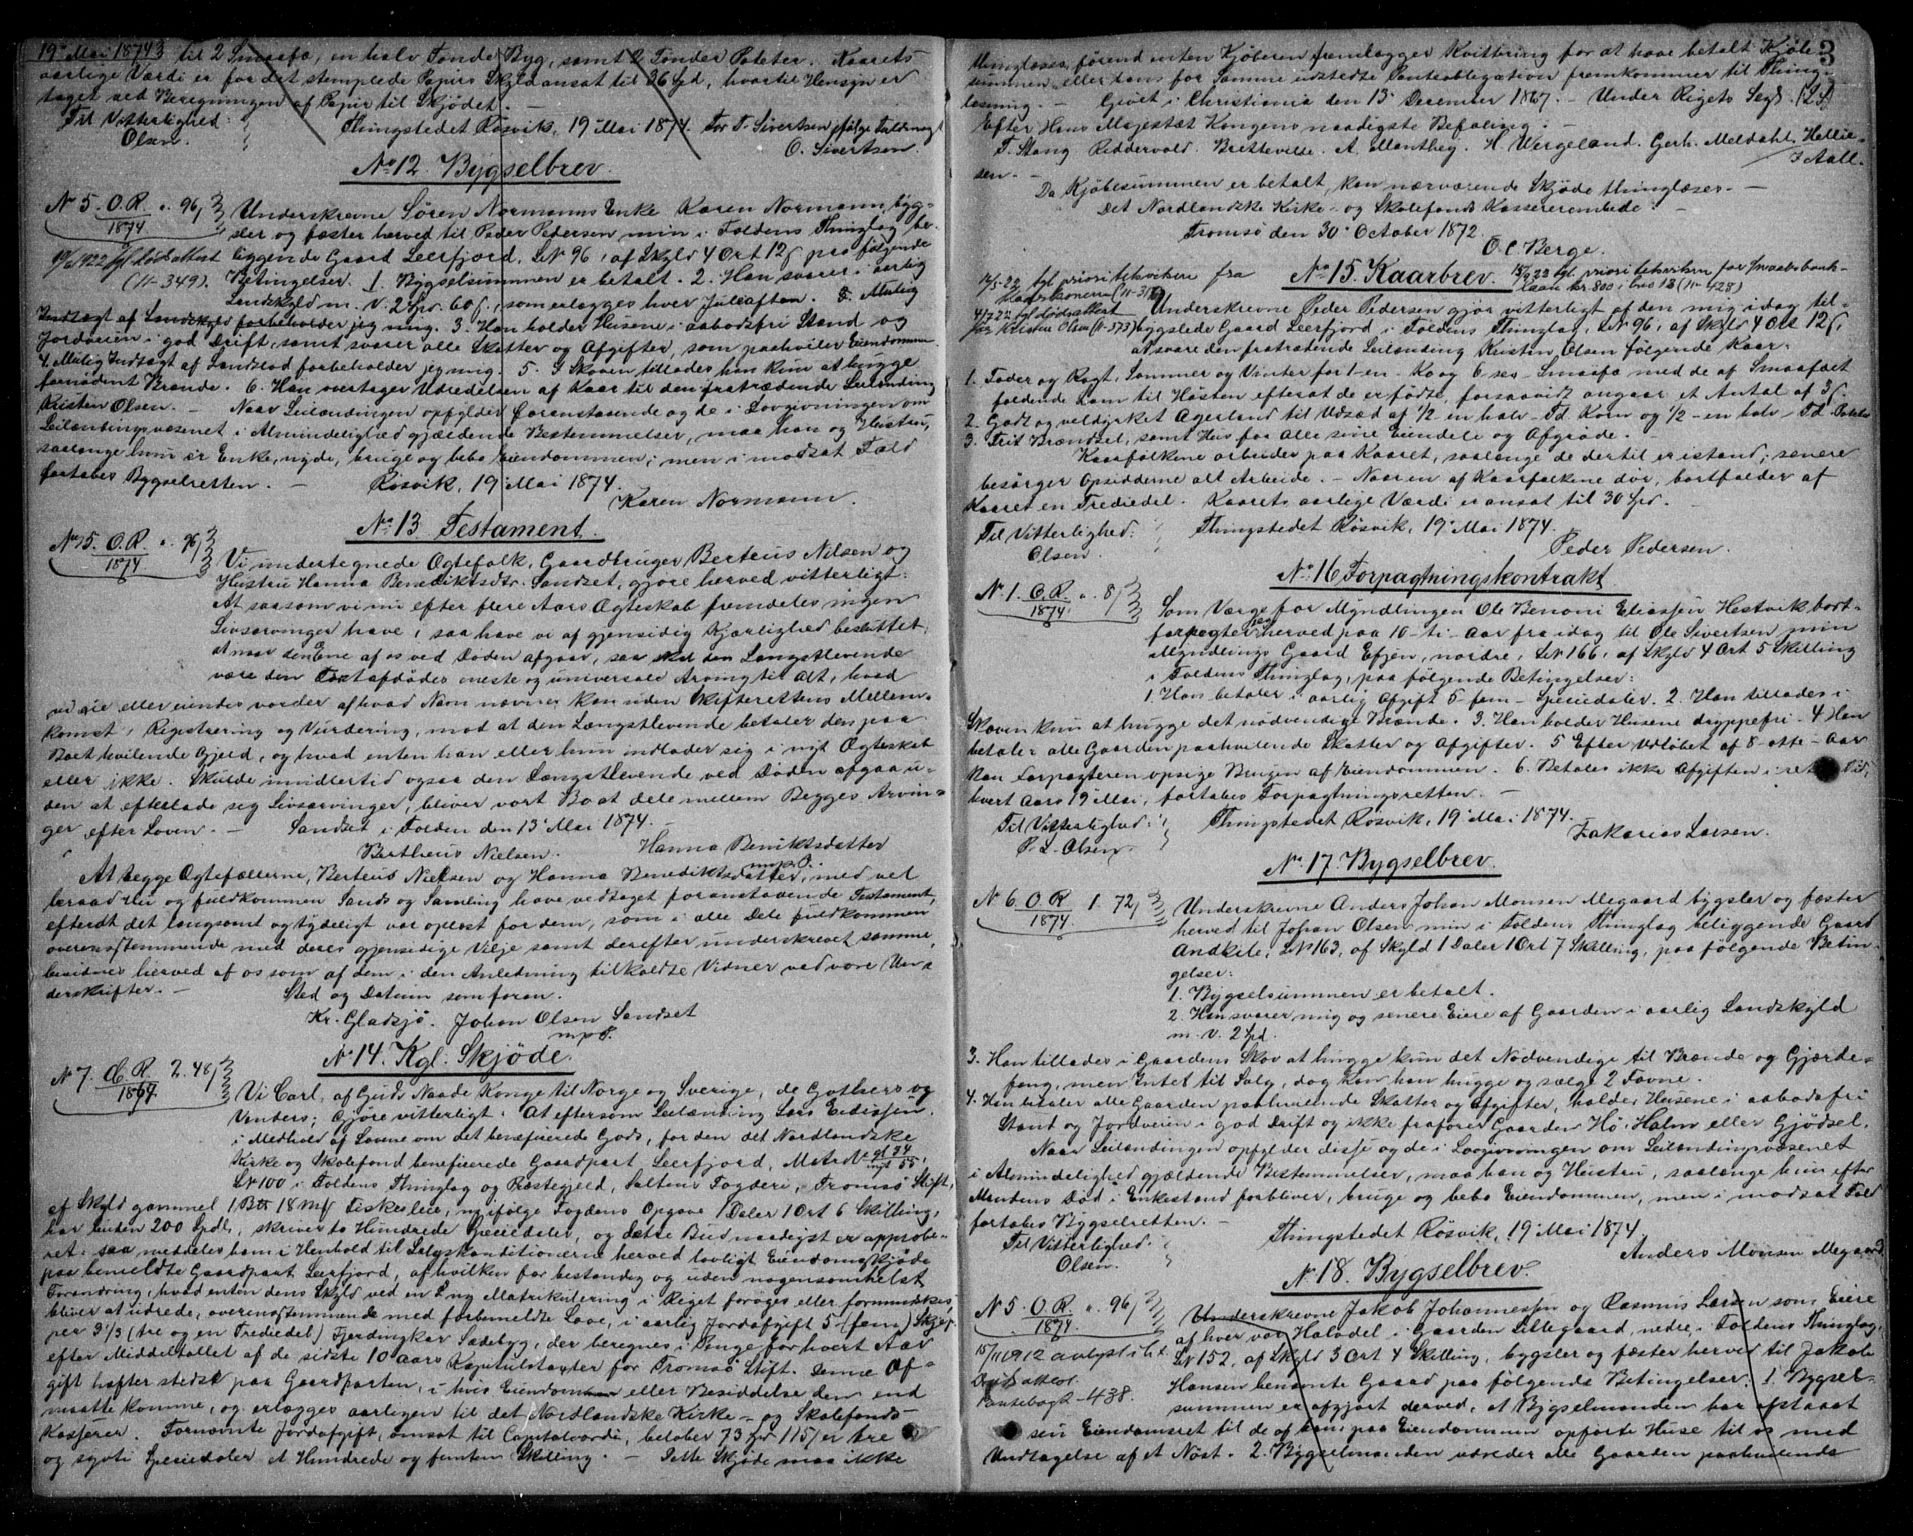 19' Mai 1874 3 til 2 Smaafæ, en halv Tønde Byg, samt 2 Tønder Poteter. Kaarets
aarlige Værdi er for det stemplede Papirs Skyld ansat til 36 Spd, hvortil Hensyn er
taget ved Beregningen af Papir til Skjødet.
Til Vitterlighed: Thingstedet Røsvik, 19' Mai 1874. For T. Sivertsen ifølge Fuldmagt
Olsen. O. Sivertsen.
No 12. Bygselbrev.
N 5. O.R. 96/ Underskrevne Søren Normanns Enke Karen Normann, byg-
1874 sler og fæster herved til Peder Pedersen min i Foldens Thinglag be-
liggende Gaard Leerfjord, LN 96, af Skyld 4 Ort 12 ſ, paa følgende
(11-349). Betingelser. 1. Bygselsummen er betalt. 2. Han svarer i aarlig
Landskyld m. v. 2 Spd. 60 ſ, som erlægges hver Juleaften. 3. Mulig
Indtægt af Landskyld forbeholder jeg mig. 3. Han holder Husene i aabodsfri Stand og
Jordveien i god Drift, samt svarer alle Skatter og Afgifter, som paahviler Eiendommen.
4. Mulig Indtægt af Landstad forbeholder jeg mig. 5. I Skoven tillades han kun at hugge
fornødent Brænde. 6. Han overtager Udredelsen af Kaar til den fratrædende Leilænding
Kristen Olsen. — Naar Leilændingen opfylder foranstaaende og de i Lovgivningen om
Leilændingsvæsenet i Almindelighed gjældende Bestemmelser, maa han og Hustru,
saalænge hun er Enke, nyde, bruge og bebo Eiendommen; men i modsat Fald
fortabes Bygselretten. — Røsvik, 19' Mai 1874.
Karen Normann.
No 13 Testament.
No 5. O.R. 96/ Vi undertegnede Ægtefolk, Gaardbruger Berteus Nilsen og
1874 Hustru Hanna Benediktsdtr. Sandset, gjøre herved vitterligt:
At saasom vi nu efter flere Aars Ægteskab fremdeles ingen
Livsarvinger have, saa have vi af gjensidig Kjærlighed besluttet,
at naar den Ene af os ved Døden afgaar, saa skal den Længstlevende
være den Førstafdødes eneste og universale Arving til Alt, hvad
vi eie eller eiendes vorder af hvad Navn nævnes kan uden Skifterettens Mellem-
komst, Registrering og Vurdering, mod at den Længstlevende betaler den paa
Boet hvilende Gjeld, og hvad enten han eller hun indlader sig i nyt Ægteskab
eller ikke. Skulde imidlertid ogsaa den Længstlevende ved Døden afgaa u-
den at efterlade sig Livsarvinger, bliver vort Bo at dele mellem Begges Arvin-
ger efter Loven. — Sandset i Folden den 13' Mai 1874.
Bertheus Nielsen. Hanna Beniktsdatter
m.p.P.
At begge Ægtefællerne, Berteus Nielsen og Hanna Benediktsdatter, med vel
beraad Hu og fuldkommen Sands og Samling have vedtaget foranstaaende Testament,
efterat det langsomt og tydeligt var oplæst for dem, som i alle Dele fuldkommen
overensstemmende med deres gjensidige Vilje samt derefter underskrevet samme,
bevidnes herved af os som af dem i den Anledning tilkaldte Vidner ved vore Un-
derskrifter. — Sted og Datum som foran.
Kr. Gladsjø. Johan Olsen Sandset
m.p.P.
No 14. Kgl. Skjøde.
N 7. O.R. 2. 48/ Vi Carl, af Guds Naade Konge til Norge og Sverige, de Gothers og
1867 Venders; Gjøre vitterligt: At eftersom Leilænding Lars Ediassen
i Medhold af Lovene om det beneficerede Gods, for den det Nordlandske
Kirke og Skolefond beneficerede Gaardpart Leerfjord, Matr. N gl 74 nyt 55,
LN 100 i Foldens Thinglag og Præstegjeld, Saltens Fogderi, Tromsø Stift,
af Skyld gammel 1 Bt 18 M Fiskesleie, ny ifølge Fogdens Opgave 1 Daler 1 Ort 6 Skilling,
har buden 200 Spdl, skriver to Hundrede Speciedaler, og dette Bud naadigst er approbe-
ret: saa meddeles ham i Henhold til Salgskonditionerne herved lovligt Eiendomsskjøde
paa bemeldte Gaardpart Leerfjord, af hvilken for bestandig og uden nogensomhelst
Forandring, hvad enten dens Skyld ved en ny Matrikulering i Riget forøges eller formindskes,
bliver at udrede, overensstemmende med forbemeldte Love, i aarlig Jordafgift 5 (fem) Skjæp-
per 3 1/3 (tre og en Trediedel) Fjerdingkar Sædebyg, der beregnes i Penge for hvert Aar
efter Middeltallet af de sidste 10 Aars Kapitulstaxter for Tromsø Stift. Denne Af-
gift hæfter stedse paa Gaardparten, i hvis Eiendom eller Besiddelse den end
maatte komme, og erlægges aarligen til det Nordlandske Kirke- og Skolefonds-
Kasserer. Fornævnte Jordafgift, ansat til Capitalværdi, beløber 73 Spd 115 ſ er tre
og syvti Speciedaler et Hundrede og femten Skilling. — Dette Skjøde maa ikke
3
thinglæses, førend enten Kjøberen fremlægger Kvittering for at have betalt Kjøbe-
summen eller den for Samme udstedte Pantobligation fremkommer til Thing-
læsning. — Givet i Christiania den 13' December 1867. — Under Rigets Segl. (L.S.)
Efter Hans Majestæt Kongens naadigste Befaling:
F. Stang Riddervold. Bretteville. A. Manthey. H. Wergeland. Gerh. Meldahl. Hellie-
sen. — J Aall.
Da Kjøbesummen er betalt, kan nærværende Skjøde thinglæses. —
Det Nordlandske Kirke- og Skolefonds Kassererembede.
Tromsø den 30' October 1872.
O. C. Berge.
No 15. Kaarbrev.
Underskrevne Peder Pedersen gjør vitterligt af den mig idag til-
bygslede Gaard Leerfjord i Foldens Thinglag, LN 96, af Skyld 4 Ort 12 ſ,
at svare den fratrædende Leilænding Kristen Olsen følgende Kaar:
1. Foder og Røgt, Sommer og Vinter for 1 – en – Ko og 6 – sex – Smaafæ med de af Smaafæet
faldende Lam til Høsten efterat de er fødte, forsaavidt angaar et Antal af 3.
2. Godt og veldyrket Agerland til Udsæd af 1/2 – en halv – Td. Korn og 1/2 – en halv – Td. Poteter
3. Frit Brændsel, samt Hus for Alle sine Eiendele og Afgrøde. —
Kaarfolkene arbeider paa Kaaret, saalænge de dertil er istand; senere
besørger Opsidderne alt Arbeide. — Naar en af Kaarfolkene dør, bortfalder af
Kaaret en Trediedel. Kaarets aarlige Værdi er ansat til 30 Spd.
Til Vitterlighed: Thingstedet Røsvik, 19' Mai 1874.
Olsen. Peder Pedersen.
No 16 Forpagtningskontrakt
N 1. O.R. 8/ Som Værge for Myndlingen Ole Benoni Eliassen Hestvik bort-
1874 forpagter jeg herved paa 10 – ti – Aar fra idag til Ole Sivertsen min
Myndlings Gaard Efjen, nordre, LN 166, af Skyld 4 Ort 5 Skilling
i Foldens Thinglag, paa følgende Betingelser:
1. Han betaler i aarlig Afgift 5 – fem – Speciedaler. 2. Han tillades i
Skoven kun at hugge det nødvendige Brænde. 3. Han holder Husene dryppefri. 4 Han
betaler alle Gaarden paahvilende Skatter og Afgifter. 5 Efter Udløbet af 8 – otte – Aar
kan Forpagteren opsige Brugen af Eiendommen. 6. Betales ikke Afgiften i rette Tid,
hvert Aars 19' Mai, fortabes Forpagtningsretten. —
Til Vitterlighed: Thingstedet Røsvik, 19' Mai 1874.
P. L. Olsen. Zakarias Larsen.
No 17. Bygselbrev.
N 6 O.R 1. 72/ Underskrevne Anders Johan Monsen Megaard bygsler og fæster
1874. herved til Johan Olsen min i Foldens Thinglag beliggende Gaard
Andkile, LN 163, af Skyld 1 Daler 1 Ort 7 Skilling, paa følgende Betin-
gelser:
1. Bygselsummen er betalt.
2. Han svarer mig og senere Eiere af Gaarden i aarlig Landskyld
m. v. 2 Spd.
3. Han tillades i Gaardens Skov at hugge kun det Nødvendige til Brænde og Gjærde-
fang, men Intet til Salg, dog kan han hugge og sælge 2 Favne.
4. Han betaler alle Gaarden paahvilende Skatter og Afgifter, holder Husene i aabodsfri
Stand og Jordveien i god Drift og ikke fraføre Gaarden Hø, Halm eller Gjødsel.
Naar Leilændingen opfylder disse og de i Lovgivningen om Leilændingsvæsenet
i Almindelighed gjældende Bestemmelser, maa han og Hustru, saalænge hun efter
Mandens Død i Enkestand forbliver, bruge og bebo Eiendommen, men i modsat Fald
fortabes Bygselretten. — Thingstedet Røsvik, 19 Mai 1874.
Til Vitterlighed. Anders Monsen Megaard
Olsen.
N 18. Bygselbrev.
N 5 O.R. 96/ Underskrevne Jakob Johannessen og Rasmus Larsen som Eiere
1874. af hver vor Halvdel i Gaarden Lillegaard, nedre, i Foldens Thinglag,
15/11 1912 avlyst LN 152, af Skyld 3 Ort 4 Skilling, bygsler og fæster herved til Jakob
Hansen benævnte Gaard paa følgende Betingelser: 1. Bygsel-
Pantebog 2-438. summen er afgjort derved, at Bygselmanden har afstaaet
sin Eiendomsret til de af ham paa Eiendommen opførte Huse til os med
Undtagelse af et Nøst. 2. Bygselmanden udreder alle Gaarden paahvilende